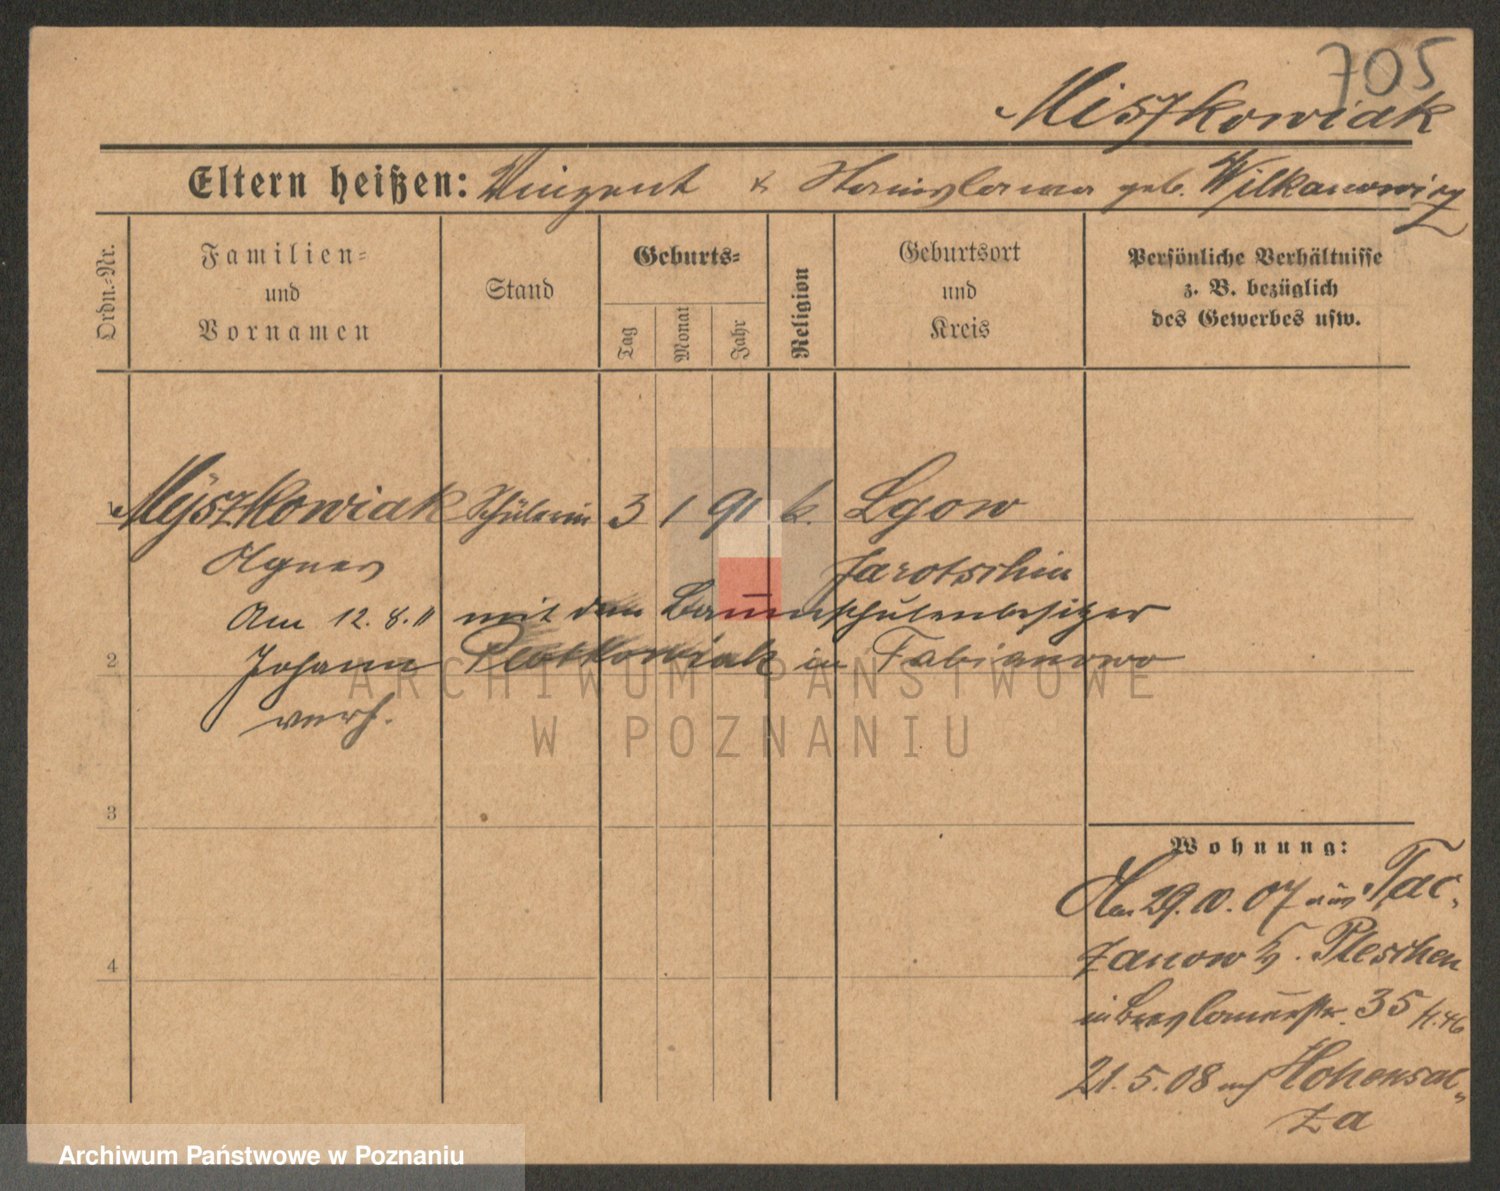 705
Miszkowiak
Eltern heißen: Vinzent & Stanislawa geb. Wilkanowicz
Ordn.-Nr.
Familien-
und
Vornamen
Stand
Geburts-
Tag
Monat
Jahr
Religion
Geburtsort
und
Kreis
Persönliche Verhältnisse
z. B. bezüglich
des Gewerbes usw.
1 Myszkowiak Schülerin 3 1 91 k. Lgow
Agnes Jarotschin
Am 12.8.11 mit dem Baumschulenbesitzer
2 Johann in Fabianowo
verh.
3
4
Wohnung:
29. 07 aus Tac-
zanow K. Pleschen
in Breslauerstr. 35
21.5.08 nach Hohensal-
za
ARCHIWUM PAŃSTWOWE
W POZNANIU
Archiwum Państwowe w Poznaniu